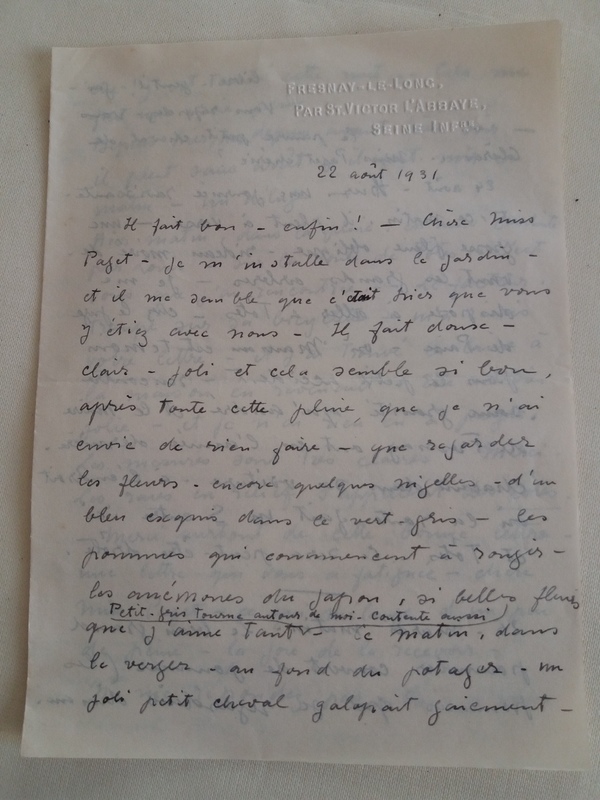 FRESNAY-LE-LONG,
PAR ST. VICTOR L'ABBAYE,
SEINE INFRE.
22 août 1931
Il fait bon - enfin ! - Chère Miss
Paget - je m'installe dans le jardin -
et il me semble que c'était hier que vous
y étiez avec nous - Il fait douse -
clair - joli et cela semble si bon,
après toute cette pluie, que je n'ai
envie de rien faire - que regarder
les fleurs - encore quelques nigelles - d'un
bleu exquis dans le vert-gris - les
pommes qui commencent à rougir -
les anémones du Japon, si belles fleurs
Petit-gris tourne autour de moi - contente aussi
que j'aime tant - Ce matin, dans
le verger - au fond du potager - un
joli petit cheval galopait gaiement -